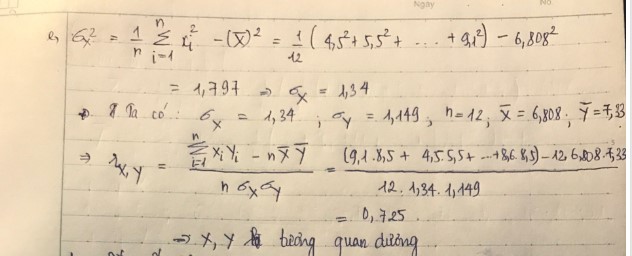 Ngày No
e, σ_X² = 1/n Σ_{i=1}^{n} x_i² - (X̄)² = 1/12 (4,5² + 5,5² + ... + 9,1²) - 6,808²
= 1,797 ⇒ σ_X = 1,34
Ta có: σ_X = 1,34 ; σ_Y = 1,149 ; n=12; X̄ = 6,808; Ȳ = 7,33
⇒ r_{X,Y} = (Σ_{i=1}^{n} x_i y_i - n X̄ Ȳ) / (n σ_X σ_Y) = ((9,1.8,5 + 4,5.5,5 + ... + 8,6.8,5) - 12.6,808.7,33) / (12.1,34.1,149)
= 0,725.
⇒ X, Y tương quan dương.